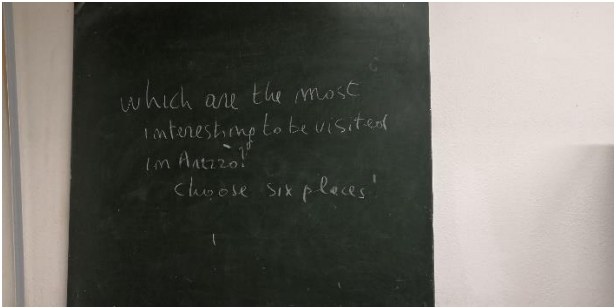 which are the most
interesting to be visited
in Arezzo?
choose six places!